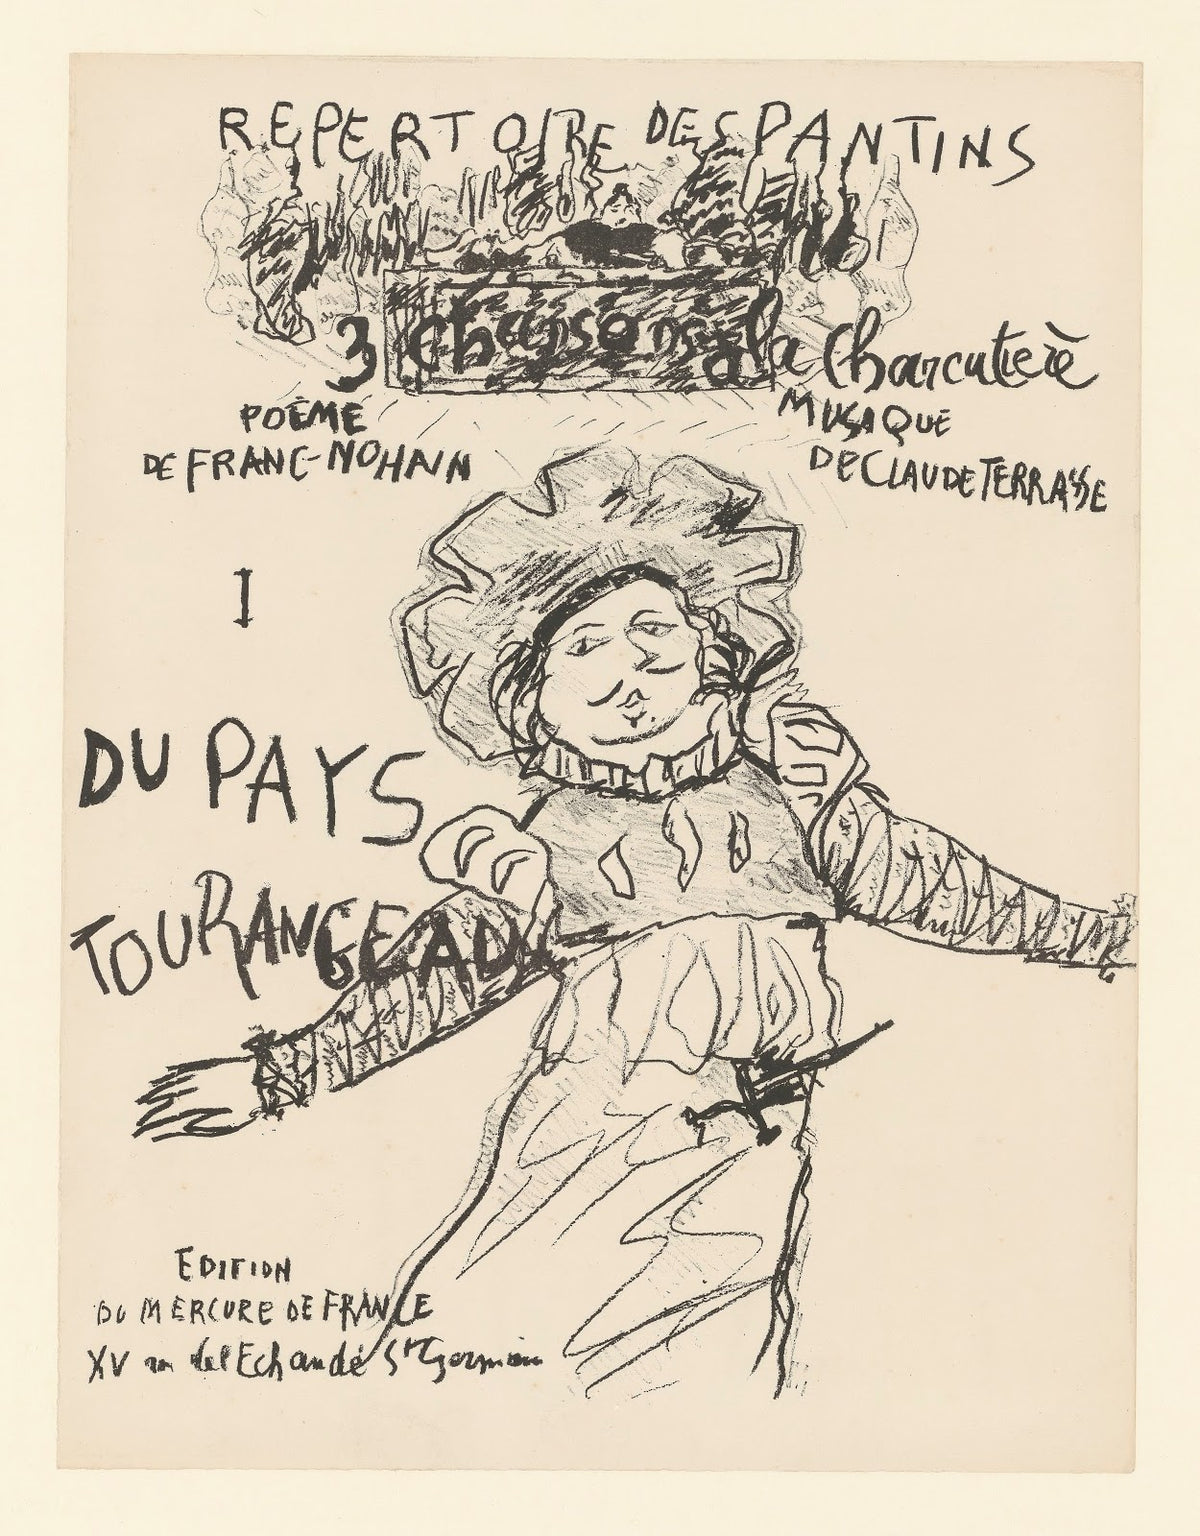 REPERTOIRE DES PANTINS
3 Chansons à la Charcutierè
POÈME
DE FRANC-NOHAIN
MUSIQUE
DE CLAUDE TERRASSE
I
DU PAYS
TOURANGEAU
EDITION
DU MERCURE DE FRANCE
XV rue de l'Echaudé St Germain